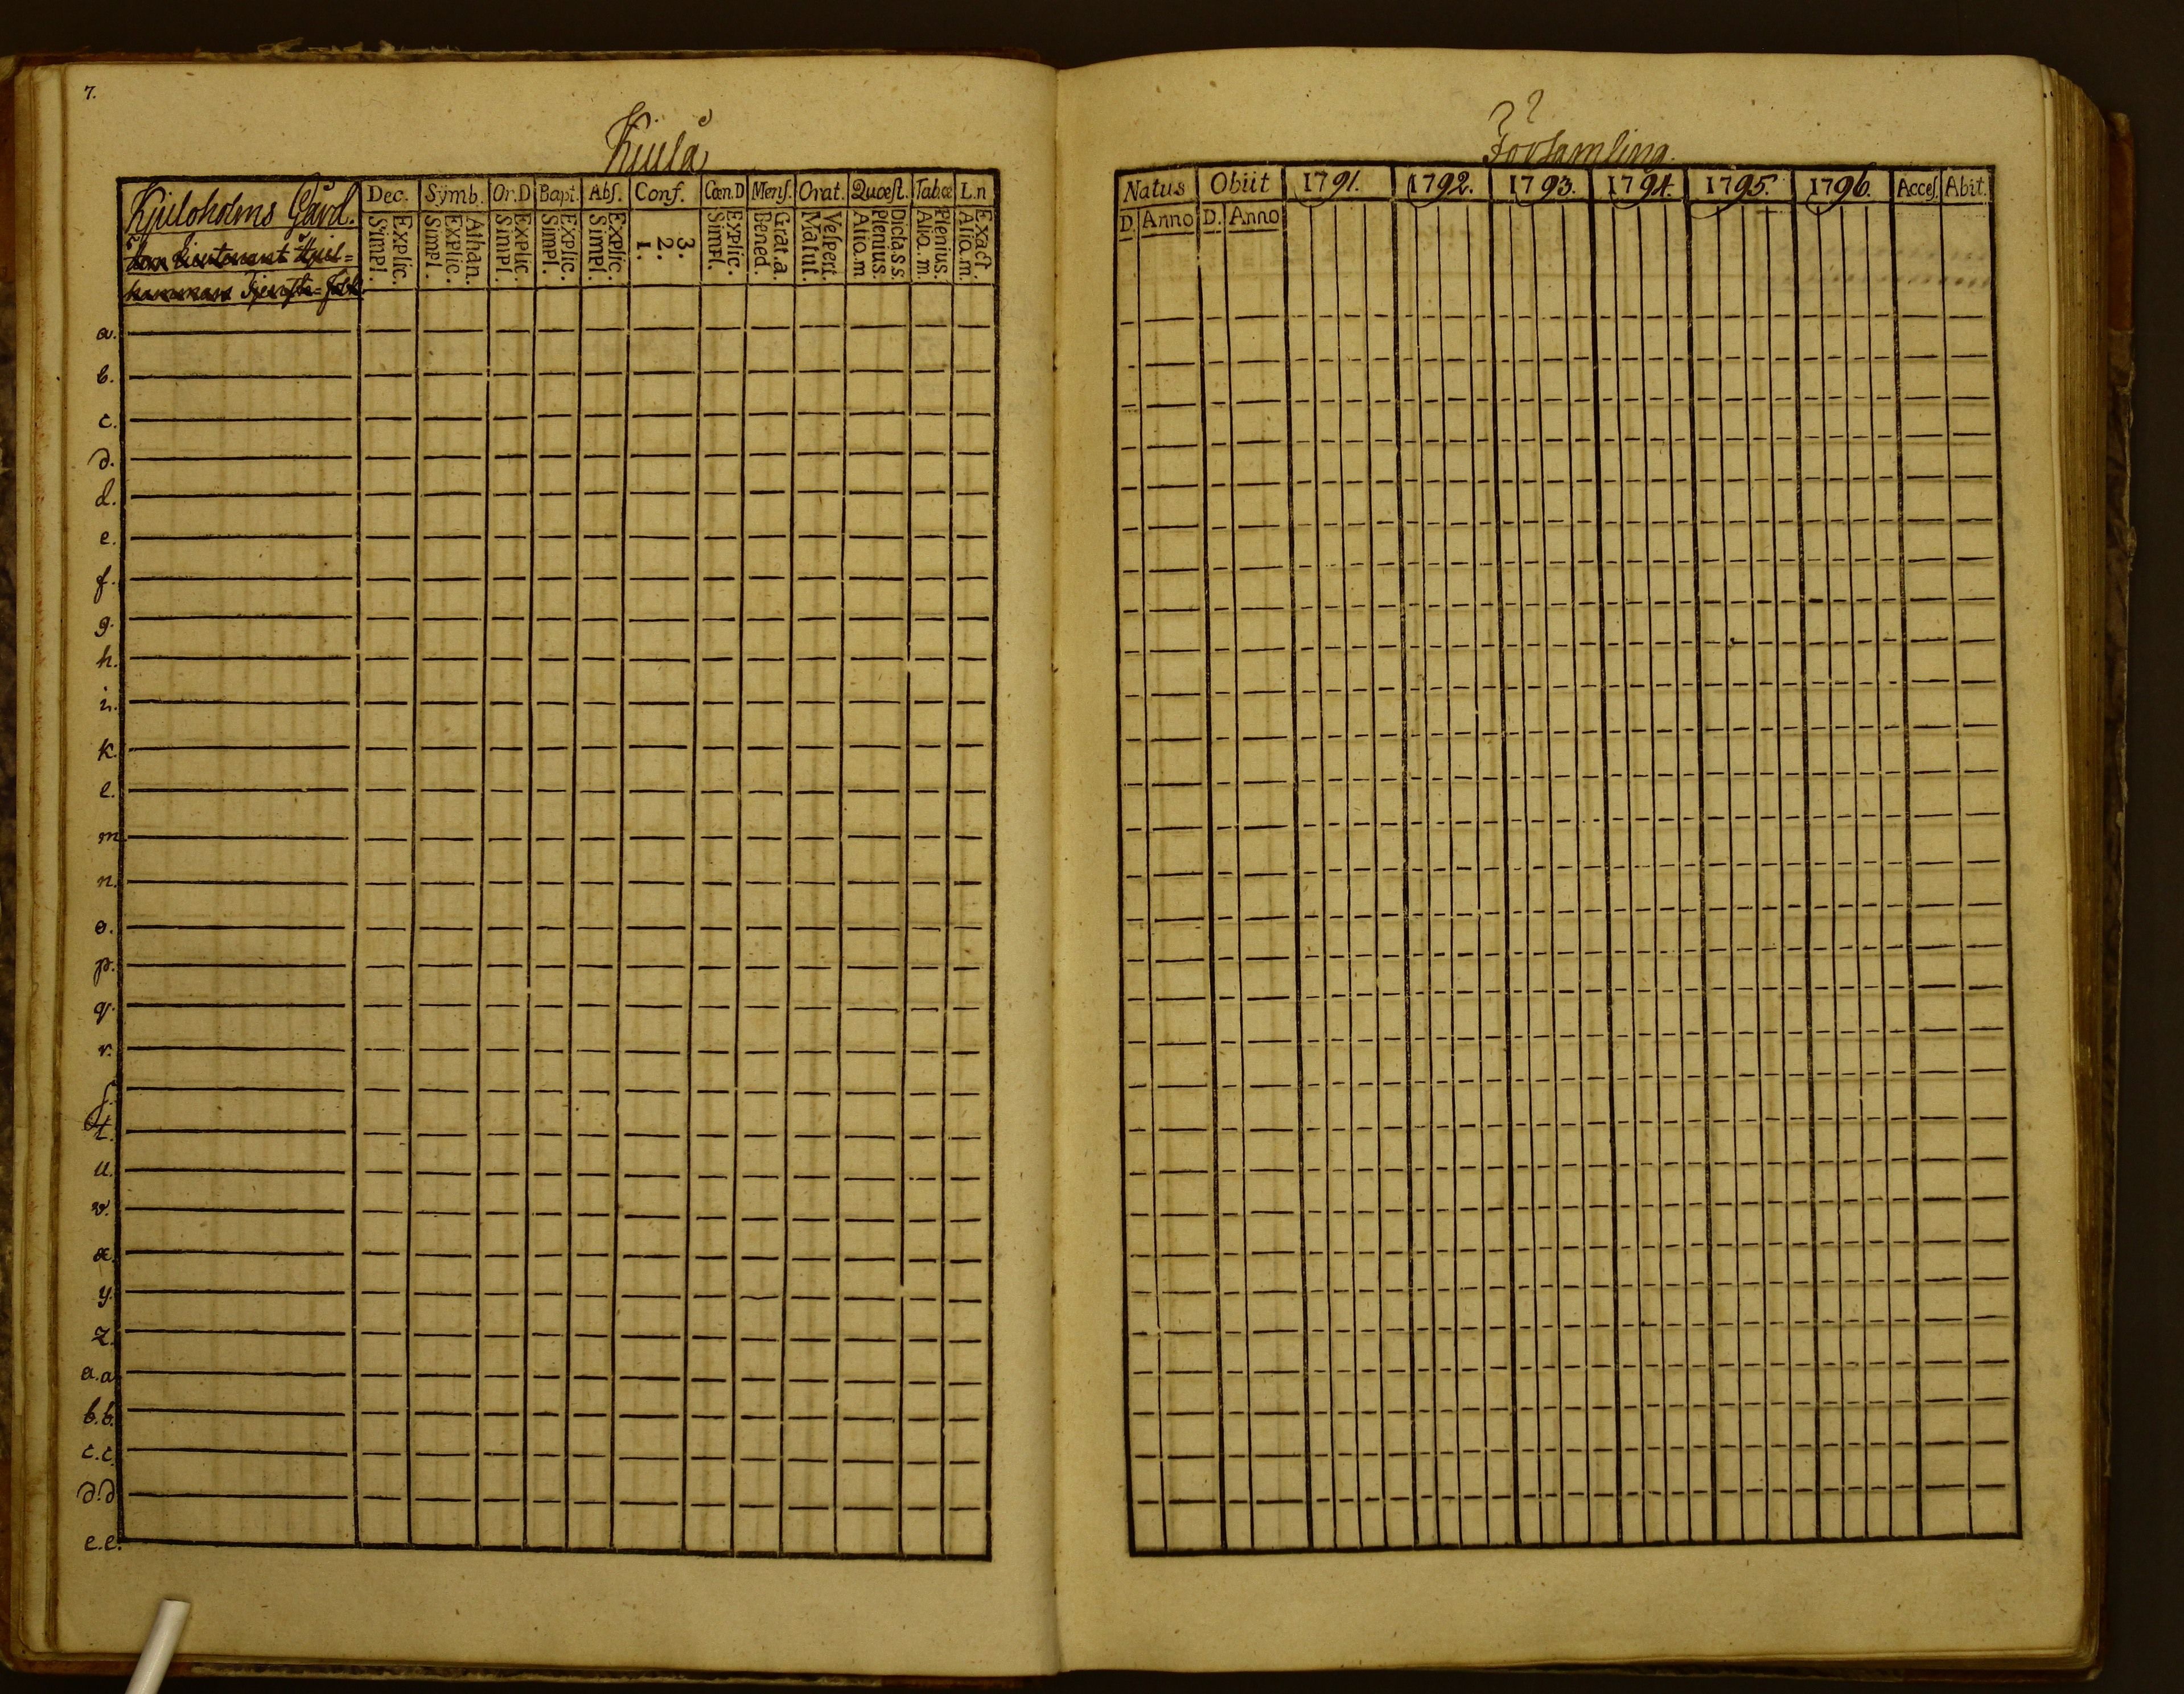 7.
Kjula
Församling.
Kjuloholms Gård.
Herr Lieutenant Hjul=
hammars Tjenste=Folk
Dec. Symb. Or.D Bapt. Abs. Conf. Cœn.D Mens. Orat. Quæst. Tabœ L.n
Explic. Simpl. Athan. Explic. Simpl. Explic. Simpl. Explic. Simpl. Explic. Simpl. 3. 2. 1. Explic. Simpl. Grat.a. Bened. Vespert. Matut. Dicta.s.s. Plenius. Alio.m Plenius. Alio.m. Exact. Alio.m.
a.
b.
c.
d.
d.
e.
f.
g.
h.
i.
k.
l.
m
n.
o.
p.
q.
r.
s.
t.
u.
v.
x.
y.
z.
a.a
b.b.
c.c.
d.d
e.e.
Natus Obiit 1791. 1792. 1793. 1794. 1795. 1796. Acces. Abit.
D. Anno D. Anno